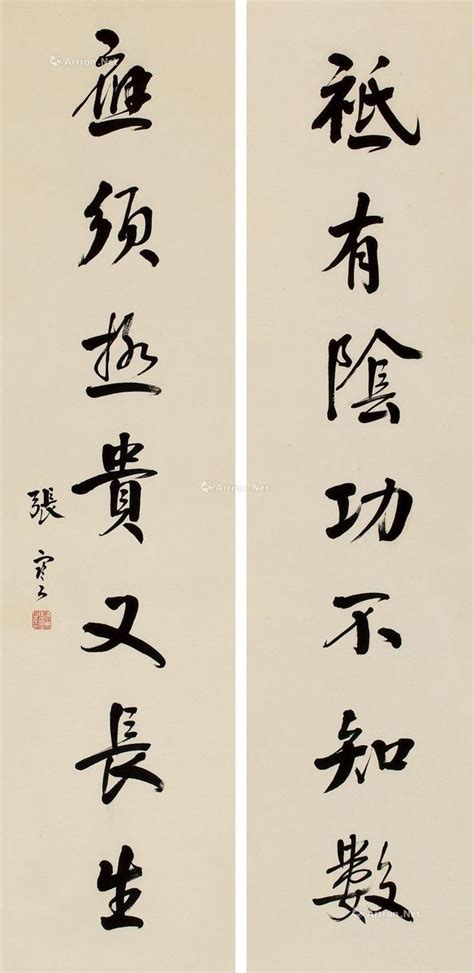 祗有陰功不知數
應須極貴又長生
張謇
Artron.Net
Artron.Net
Artron.Net